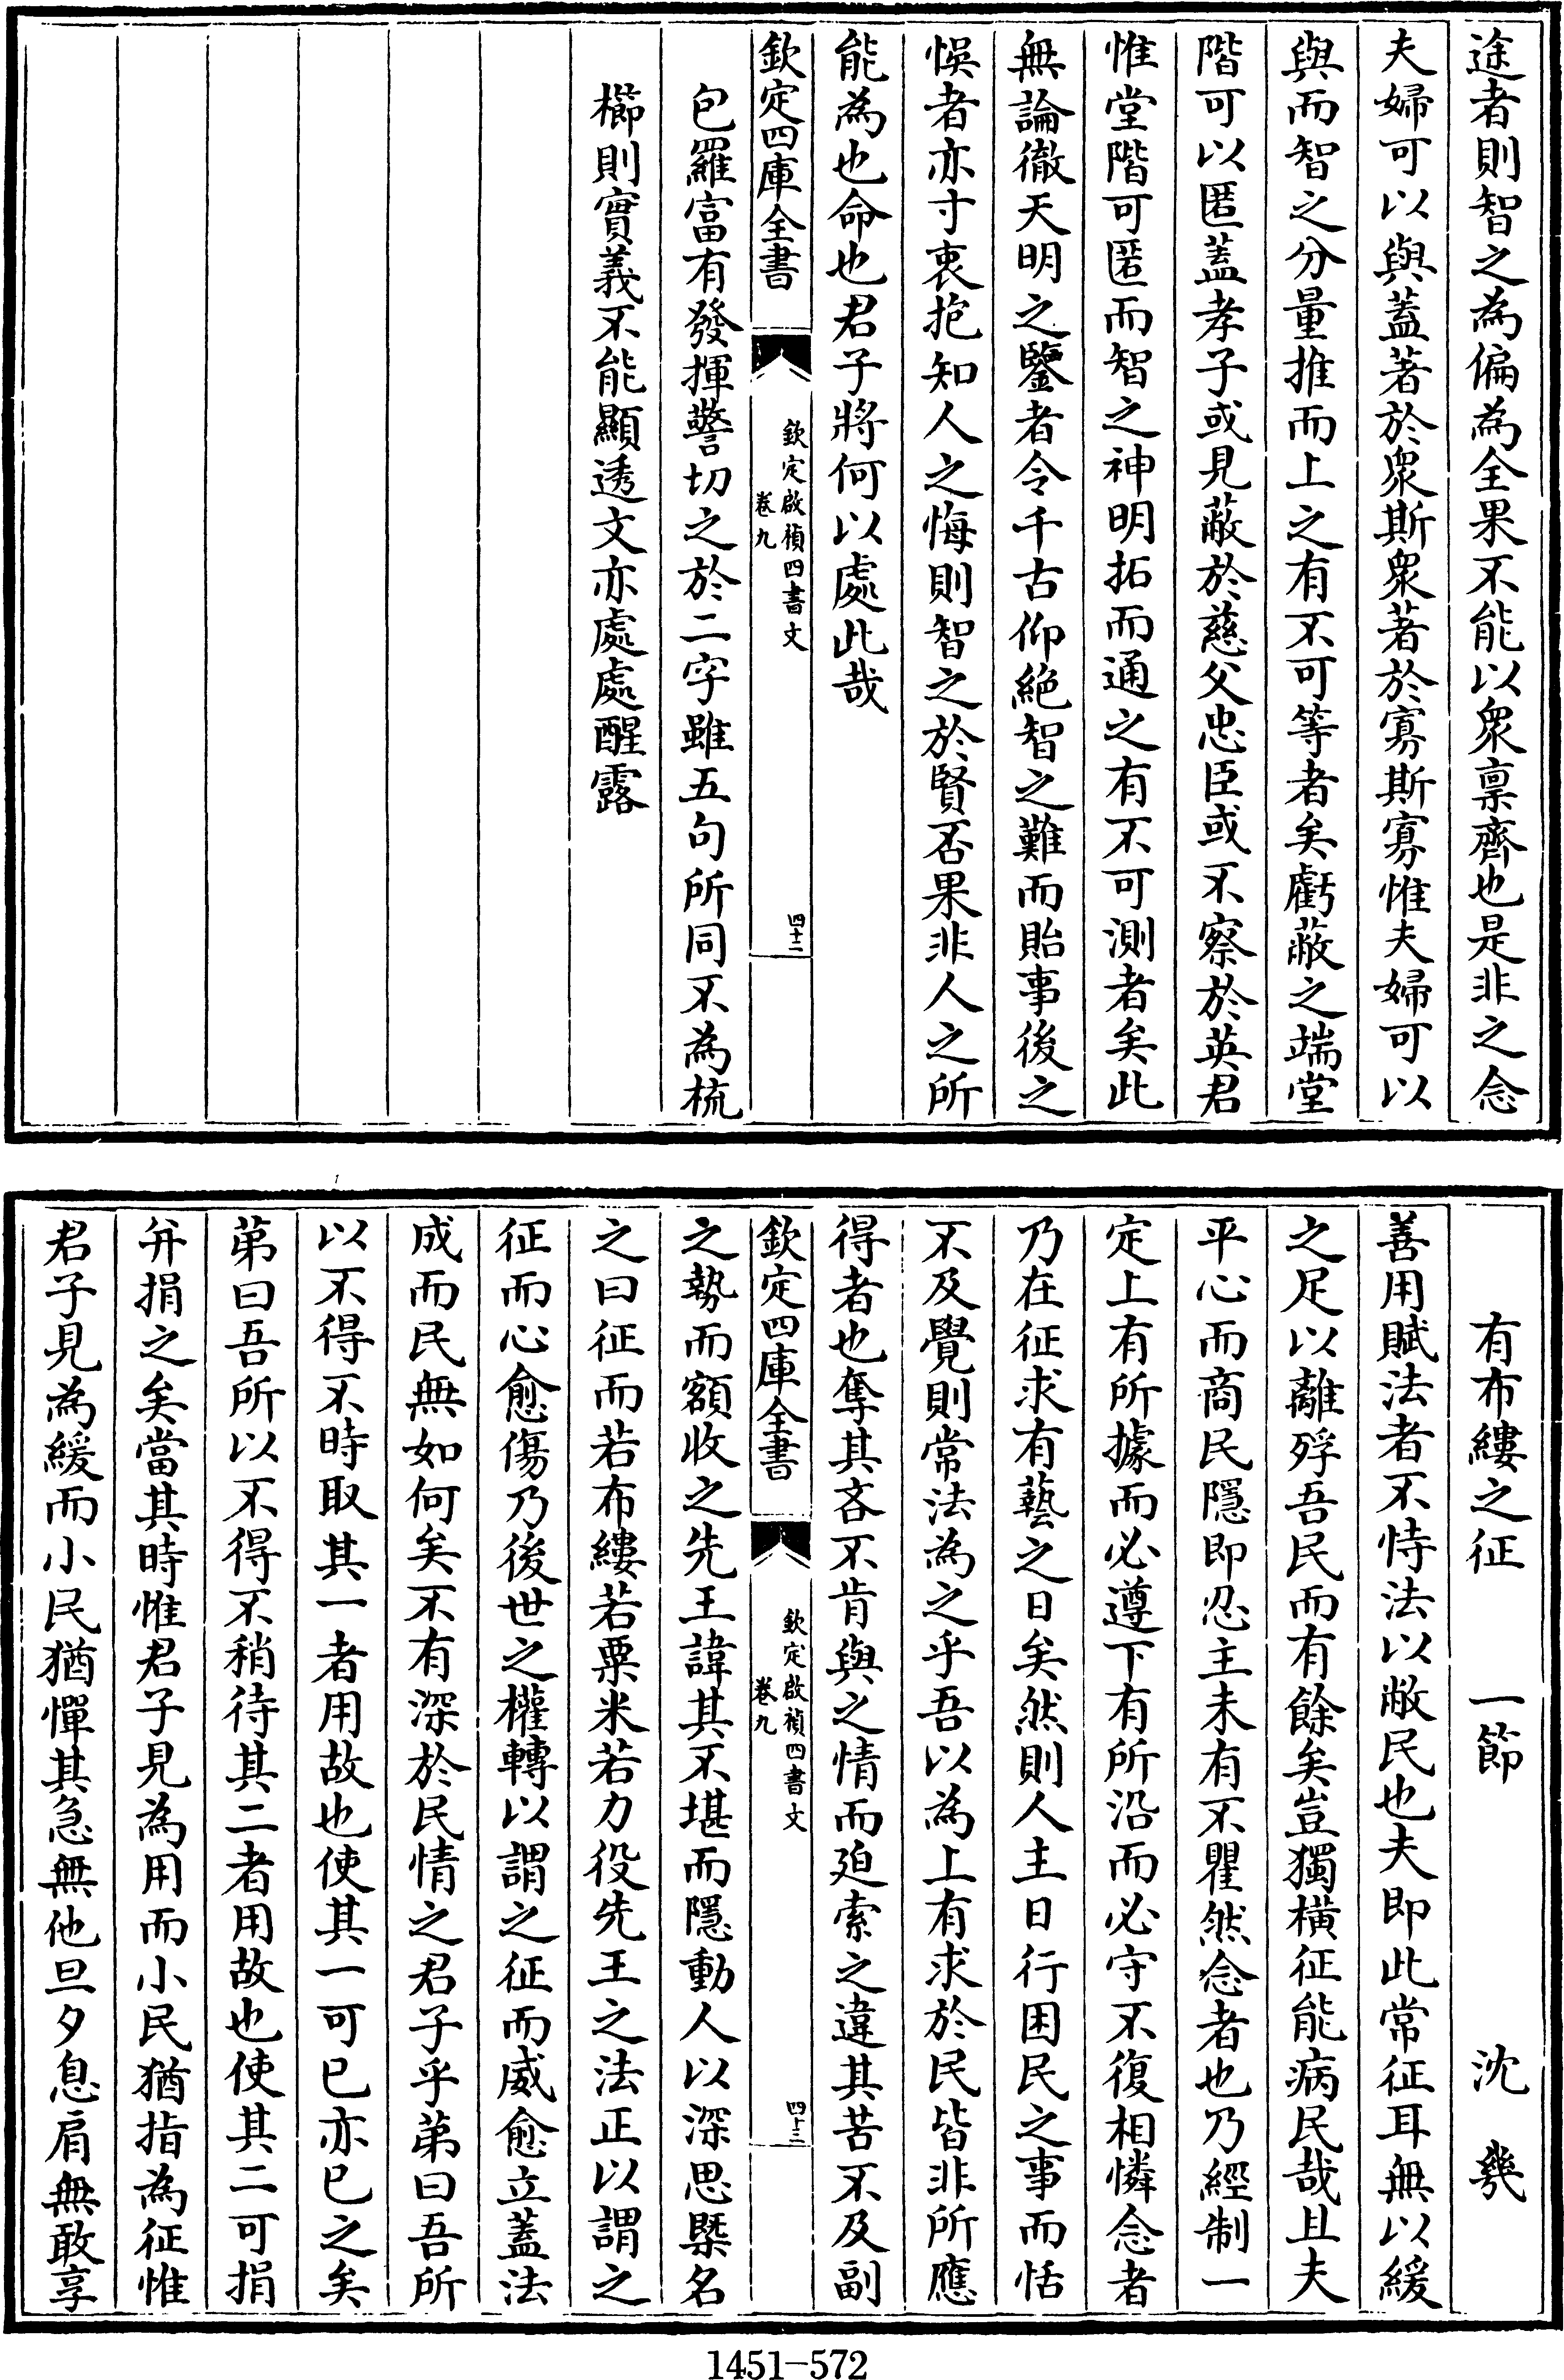 途者則智之為偏為全果不能以衆稟齊也是非之念
夫婦可以與蓋著於衆斯衆著於寡斯寡惟夫婦可以
與而智之分量推而上之有不可等者矣虧蔽之端堂
階可以匿蓋孝子或見蔽於慈父忠臣或不察於英君
惟堂階可匿而智之神明拓而通之有不可測者矣此
無論徹天明之鑒者令千古仰絶智之難而貽事後之
悞者亦寸衷抱知人之悔則智之於賢否果非人之所
能為也命也君子將何以處此哉
欽定四庫全書
欽定啟禎四書文
卷九
四十二
包羅富有發揮警切之於二字雖五句所同不為梳
櫛則實義不能顯透文亦處處醒露
有布縷之征 一節 沈幾
善用賦法者不恃法以敝民也夫即此常征耳無以緩
之足以離殍吾民而有餘矣豈獨橫征能病民哉且夫
平心而商民隱即忍主未有不瞿然念者也乃經制一
定上有所據而必遵下有所沿而必守不復相憐念者
乃在征求有藝之日矣然則人主日行困民之事而恬
不及覺則常法為之乎吾以為上有求於民皆非所應
得者也奪其吝不肯與之情而廹索之違其苦不及副
欽定四庫全書
欽定啟禎四書文
卷九
四十三
之勢而額收之先王諱其不堪而隱動人以深思槩名
之曰征而若布縷若粟米若力役先王之法正以謂之
征而心愈傷乃後世之權轉以謂之征而威愈立蓋法
成而民無如何矣不有深於民情之君子乎弟曰吾所
以不得不時取其一者用故也使其一可已亦已之矣
弟曰吾所以不得不稍待其二者用故也使其二可捐
并捐之矣當其時惟君子見為用而小民猶指為征惟
君子見為緩而小民猶憚其急無他旦夕息肩無敢享
1451-572